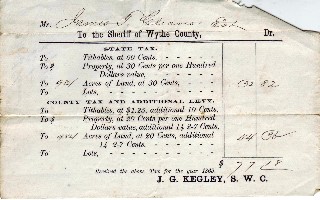 Mr. James
To the Sheriff of Wythe County, Dr.
STATE TAX.
To Tithables, at 60 Cents,
To $ Property, at 30 Cents per one Hundred
Dollars value,
To Acres of Land, at 30 Cents, 82
To Lots,
COUNTY TAX AND ADDITIONAL LEVY.
To Tithables, at $1.25, additional 10 Cents,
To $ Property, at 20 Cents per one Hundred
Dollars value, additional 1½ 2-7 Cents,
To Acres of Land, at 20 Cents, additional 44
1½ 2-7 Cents,
To Lots,
$
Received the above Tax for the year 186
J. G. KEGLEY, S. W. C.